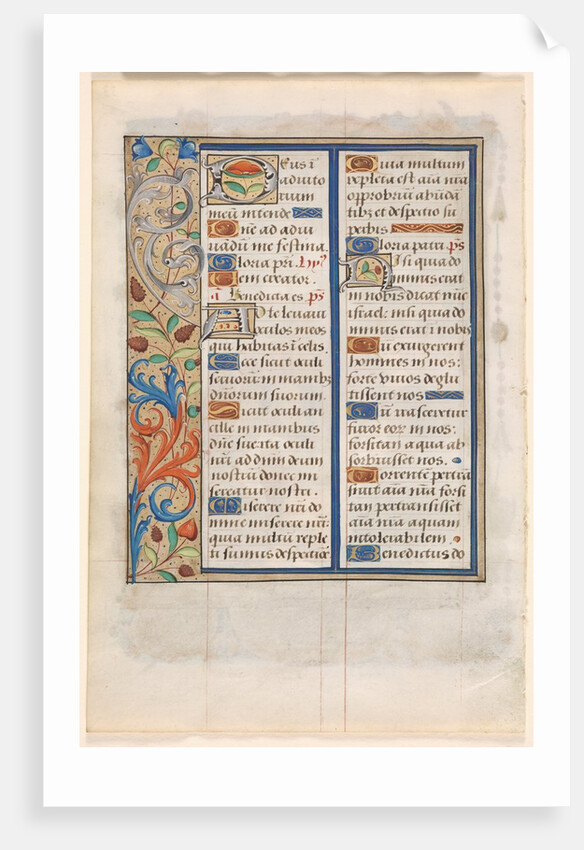 Deus ī
adiuto
rium
meū intende
Dñe ad adiu
uādū me festina.
Gloria p̄ri. hyꝰ
Uem creator.
añ Benedicta es. p̄s
Ad te leuaui
oculos meos
qui habitas ī celis.
Ecce sicut oculi
seruorū: in manibꝫ
dnorum suorum.
Sicut oculi an
cille in manibus
dñe sue: ita oculi
nr̄i ad dñm deum
nostrū donec mi
sereatur nostri.
Miserere nr̄i do
mine miserere nr̄i:
quia multū reple
ti sumus despectiōe
Quia multum
repleta est aīa nr̄a
opprobriū abūdā
tibꝫ et despectio su
perbis
Gloria patri. p̄s
Nisi quia do
minus erat
in nobis dicat nūc
israel: nisi quia do
minus erat ī nobis
Cū exurgerent
homines in nos:
forte viuos deglu
tissent nos
Cū irasceretur
furor eorꝫ in nos:
forsitan aqua ab
sorbuisset nos.
Torrentē pertrā
siuit aīa nr̄a: forsi
tan pertransisset
aīa nr̄a aquam
intolerabilem.
Benedictus do